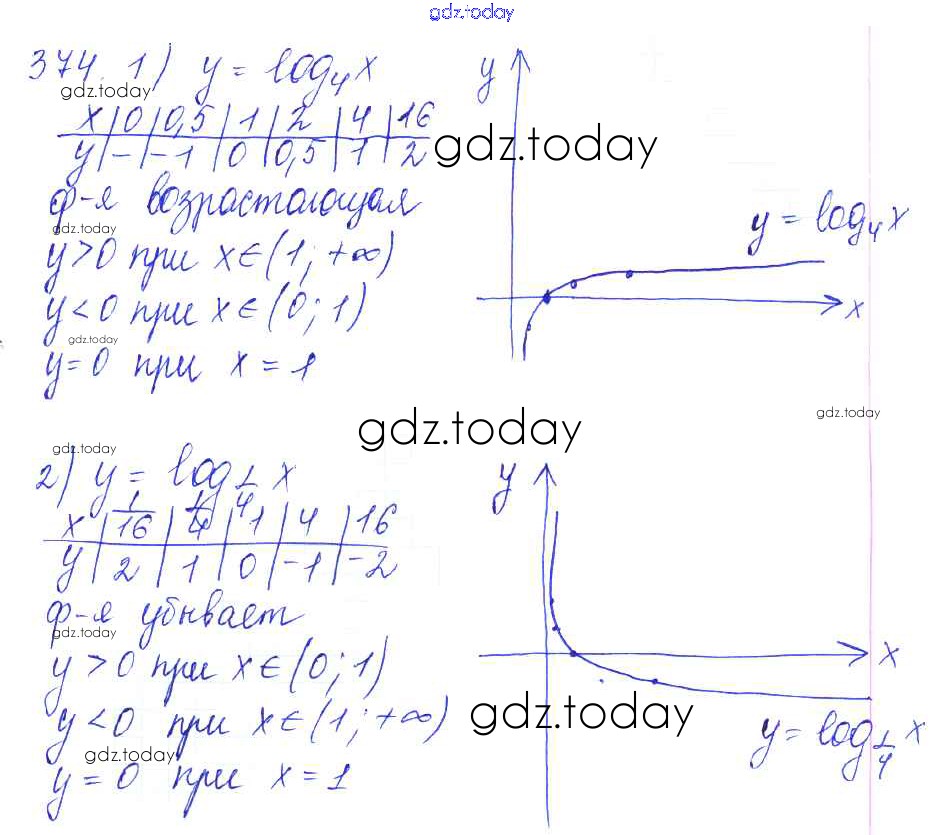 gdz.today
374. 1) y = log₄x
gdz.today
x | 0 | 0,5 | 1 | 2 | 4 | 16
y | – | –1 | 0 | 0,5 | 1 | 2
gdz.today
ф-я возрастающая
gdz.today
y>0 при x∈(1; +∞)
y<0 при x∈(0; 1)
gdz.today
y=0 при x = 1
y
y = log₄x
x
gdz.today
gdz.today
gdz.today
2) y = log_{1/4} x
x | 1/16 | 1/4 | 1 | 4 | 16
y | 2 | 1 | 0 | –1 | –2
ф-я убывает
gdz.today
y > 0 при x∈(0; 1)
y < 0 при x∈(1; +∞)
gdz.today
y = 0 при x = 1
y
x
gdz.today
y = log_{1/4} x